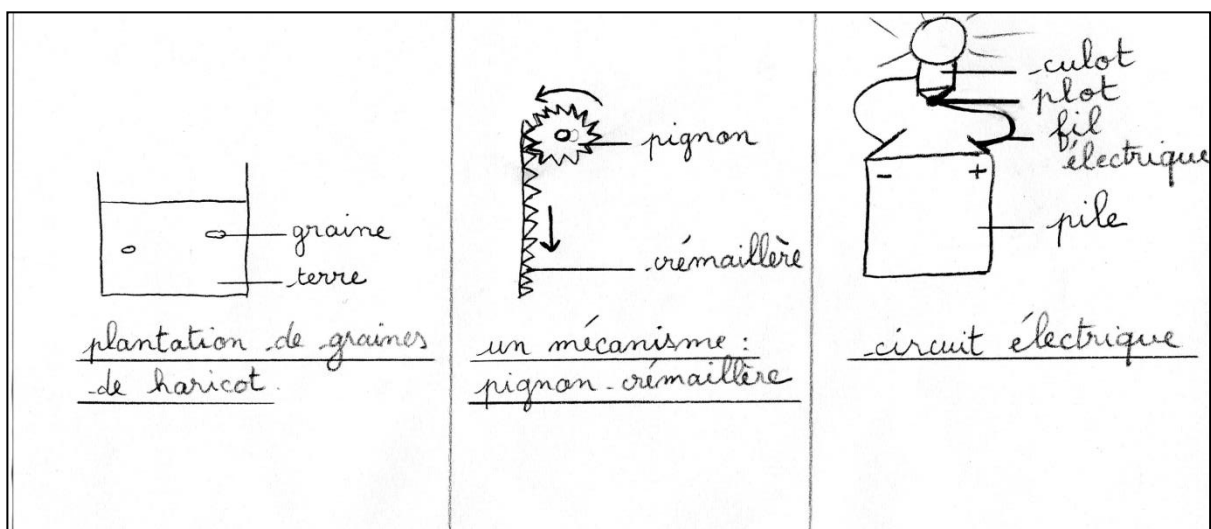 graine
terre
plantation de graines
de haricot.
pignon
crémaillère
un mécanisme :
pignon-crémaillère
culot
plot
fil
électrique
-
+
pile
circuit électrique